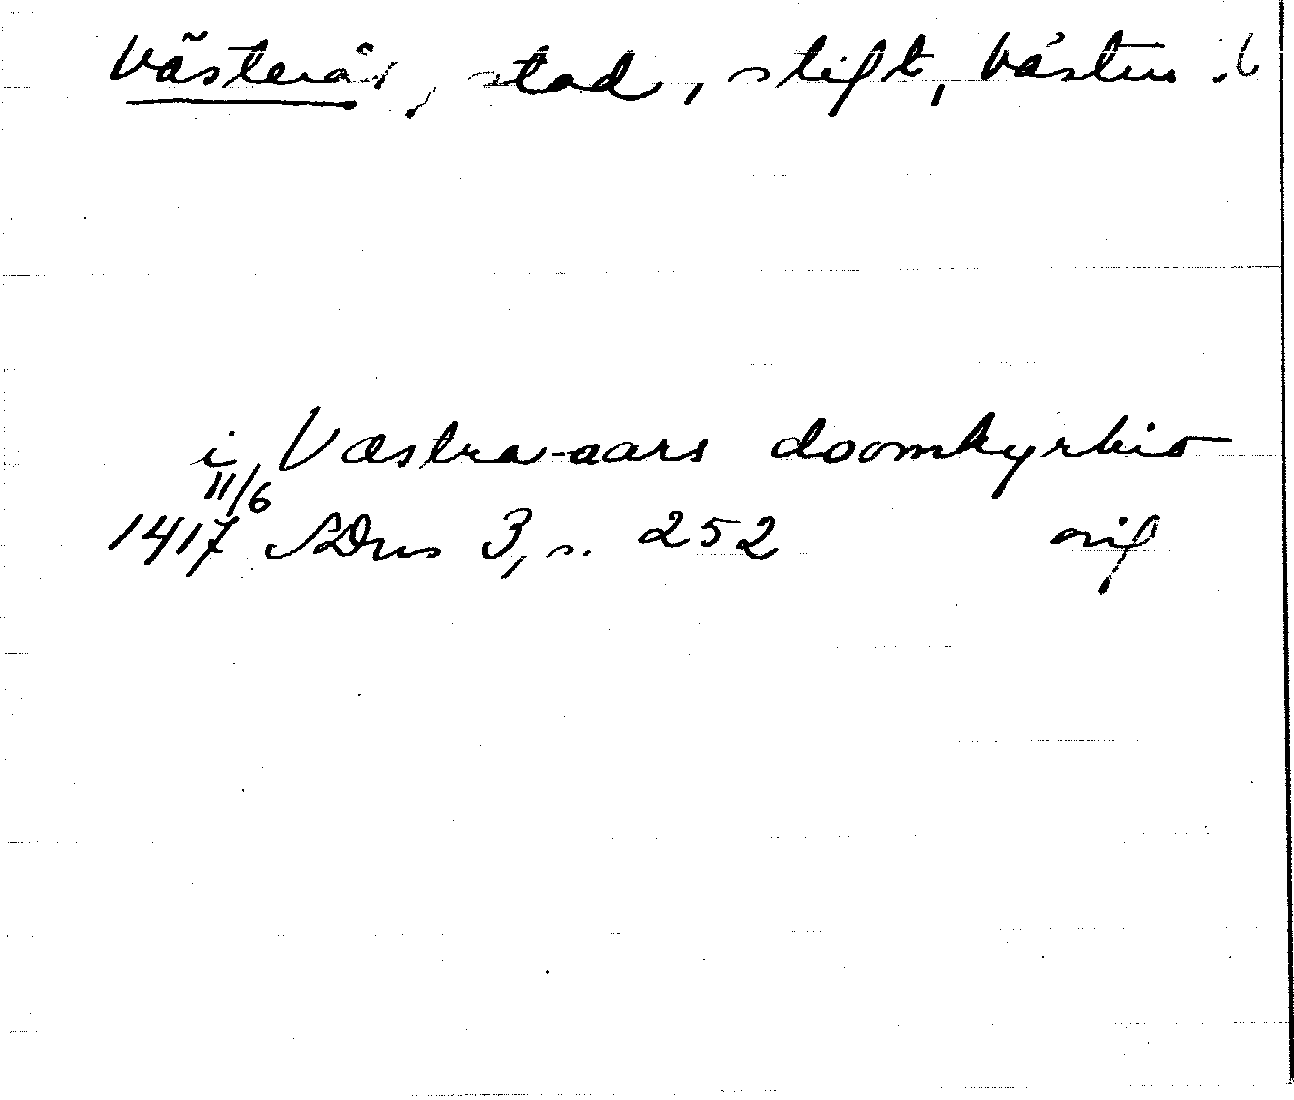 Västerås, stad, stift, Västm. l
i Væstra-aars doomkyrkio
11/6
1417 SDns 3, s. 252 orig